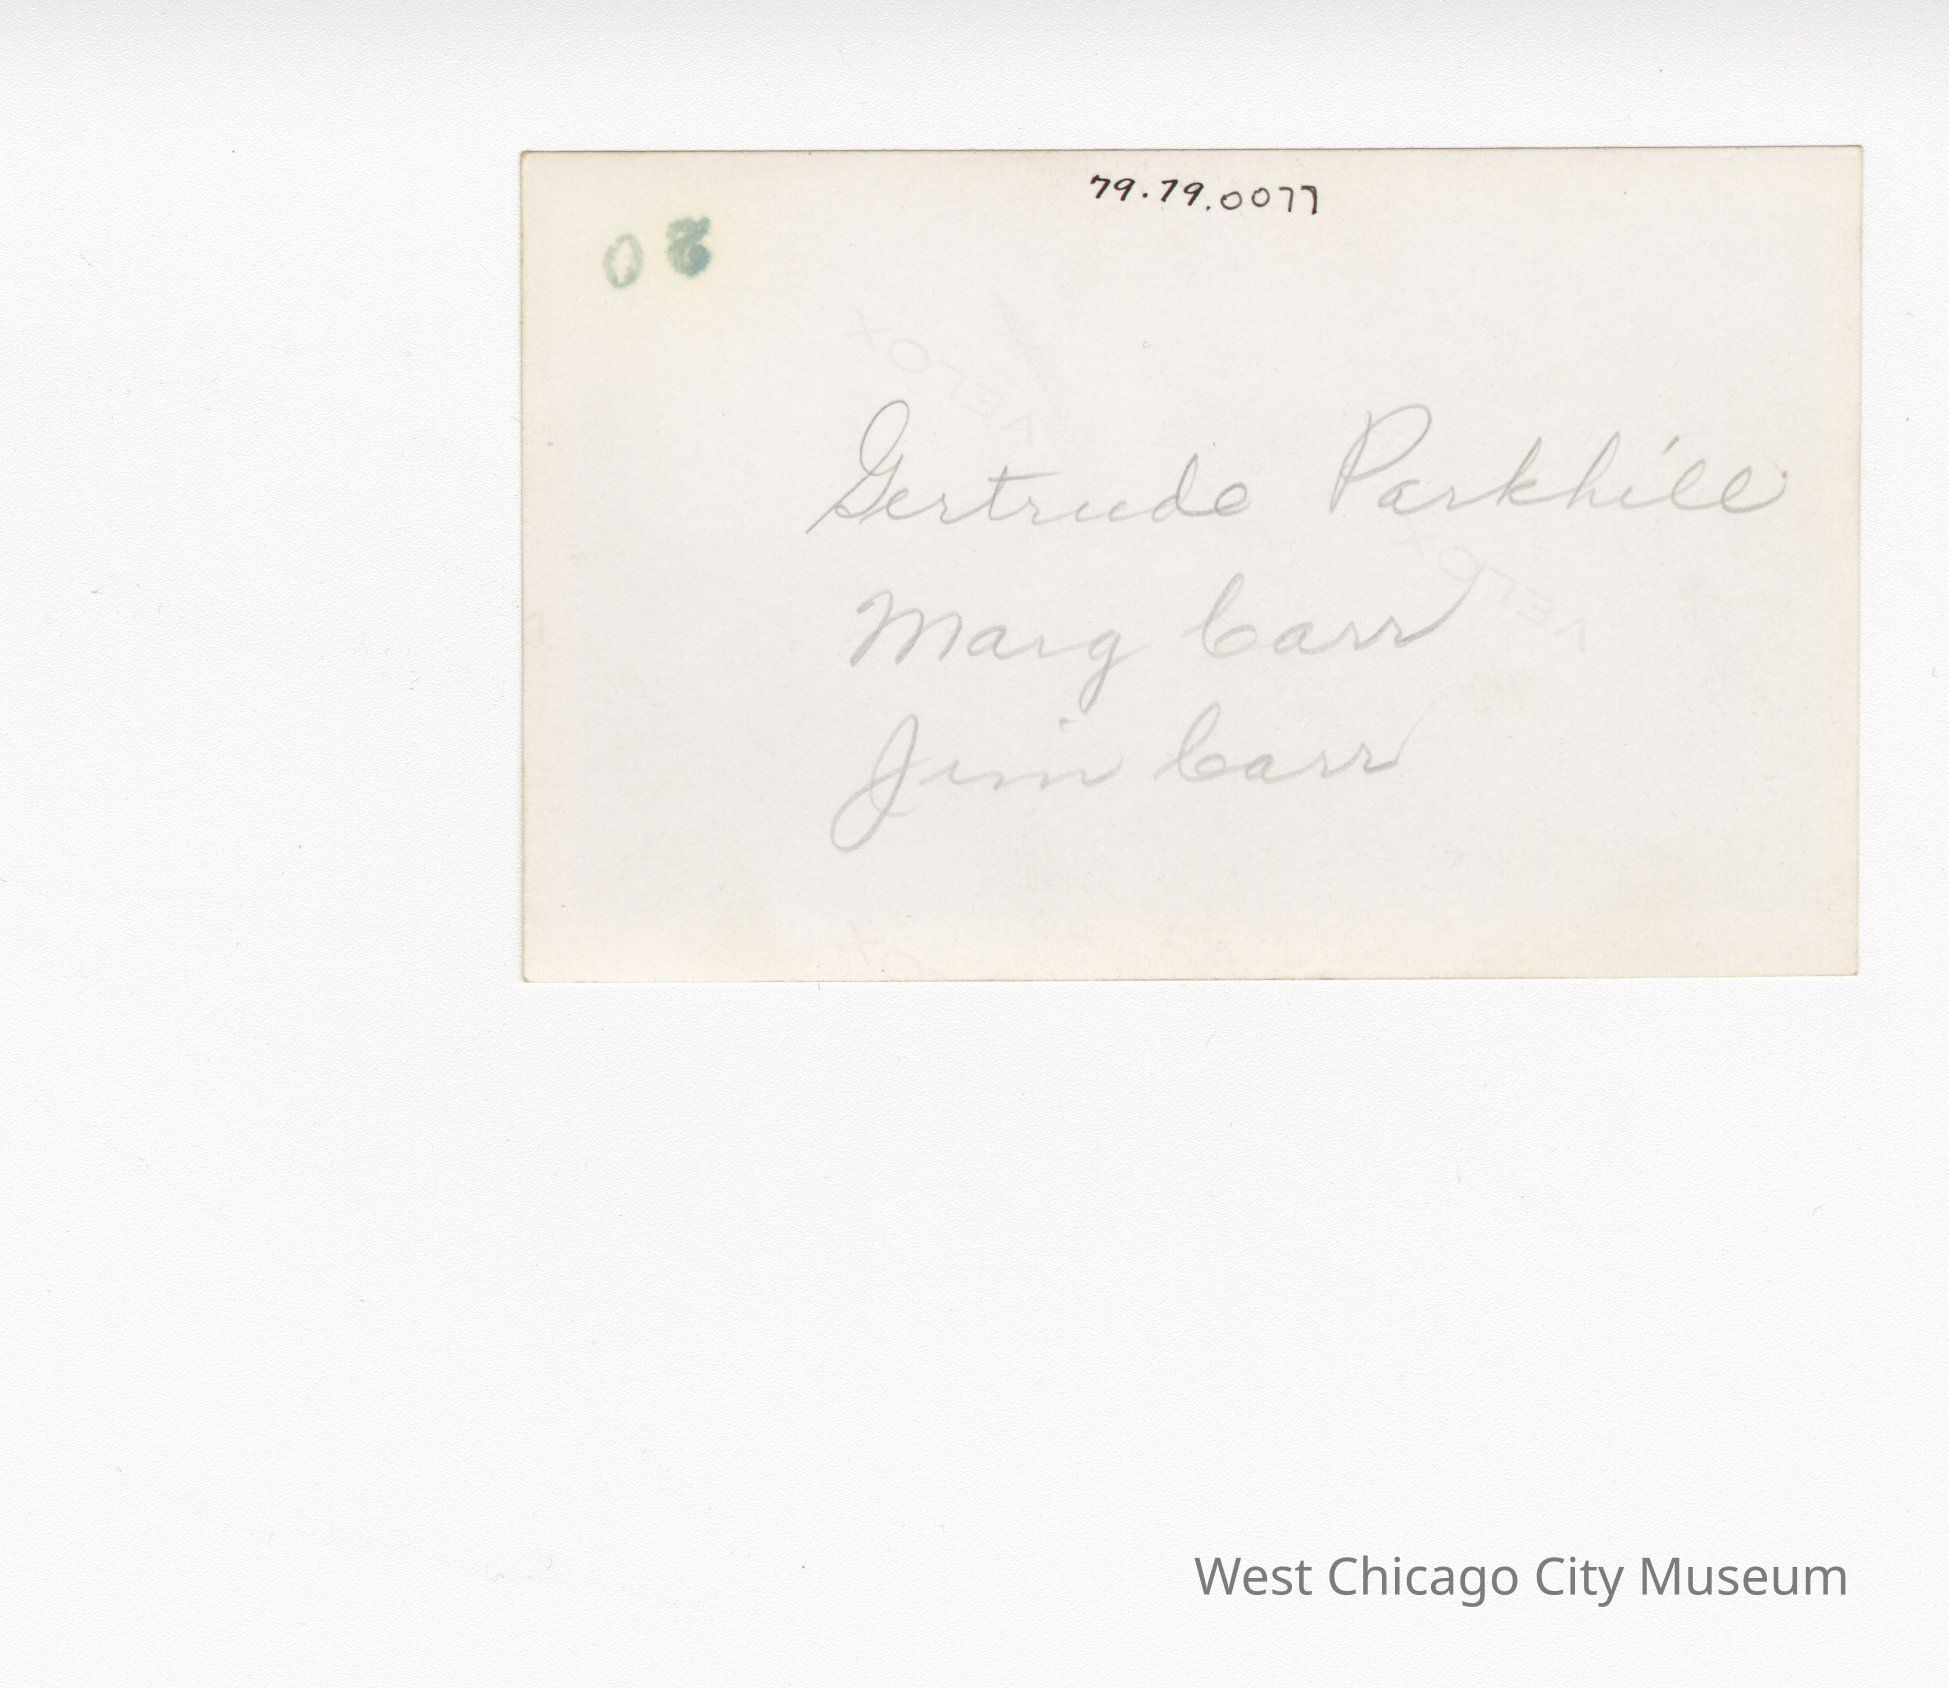 79.79.0077
VELOX
Gertrude Parkhill
VELOX
Marg Carr
Jim Carr
West Chicago City Museum